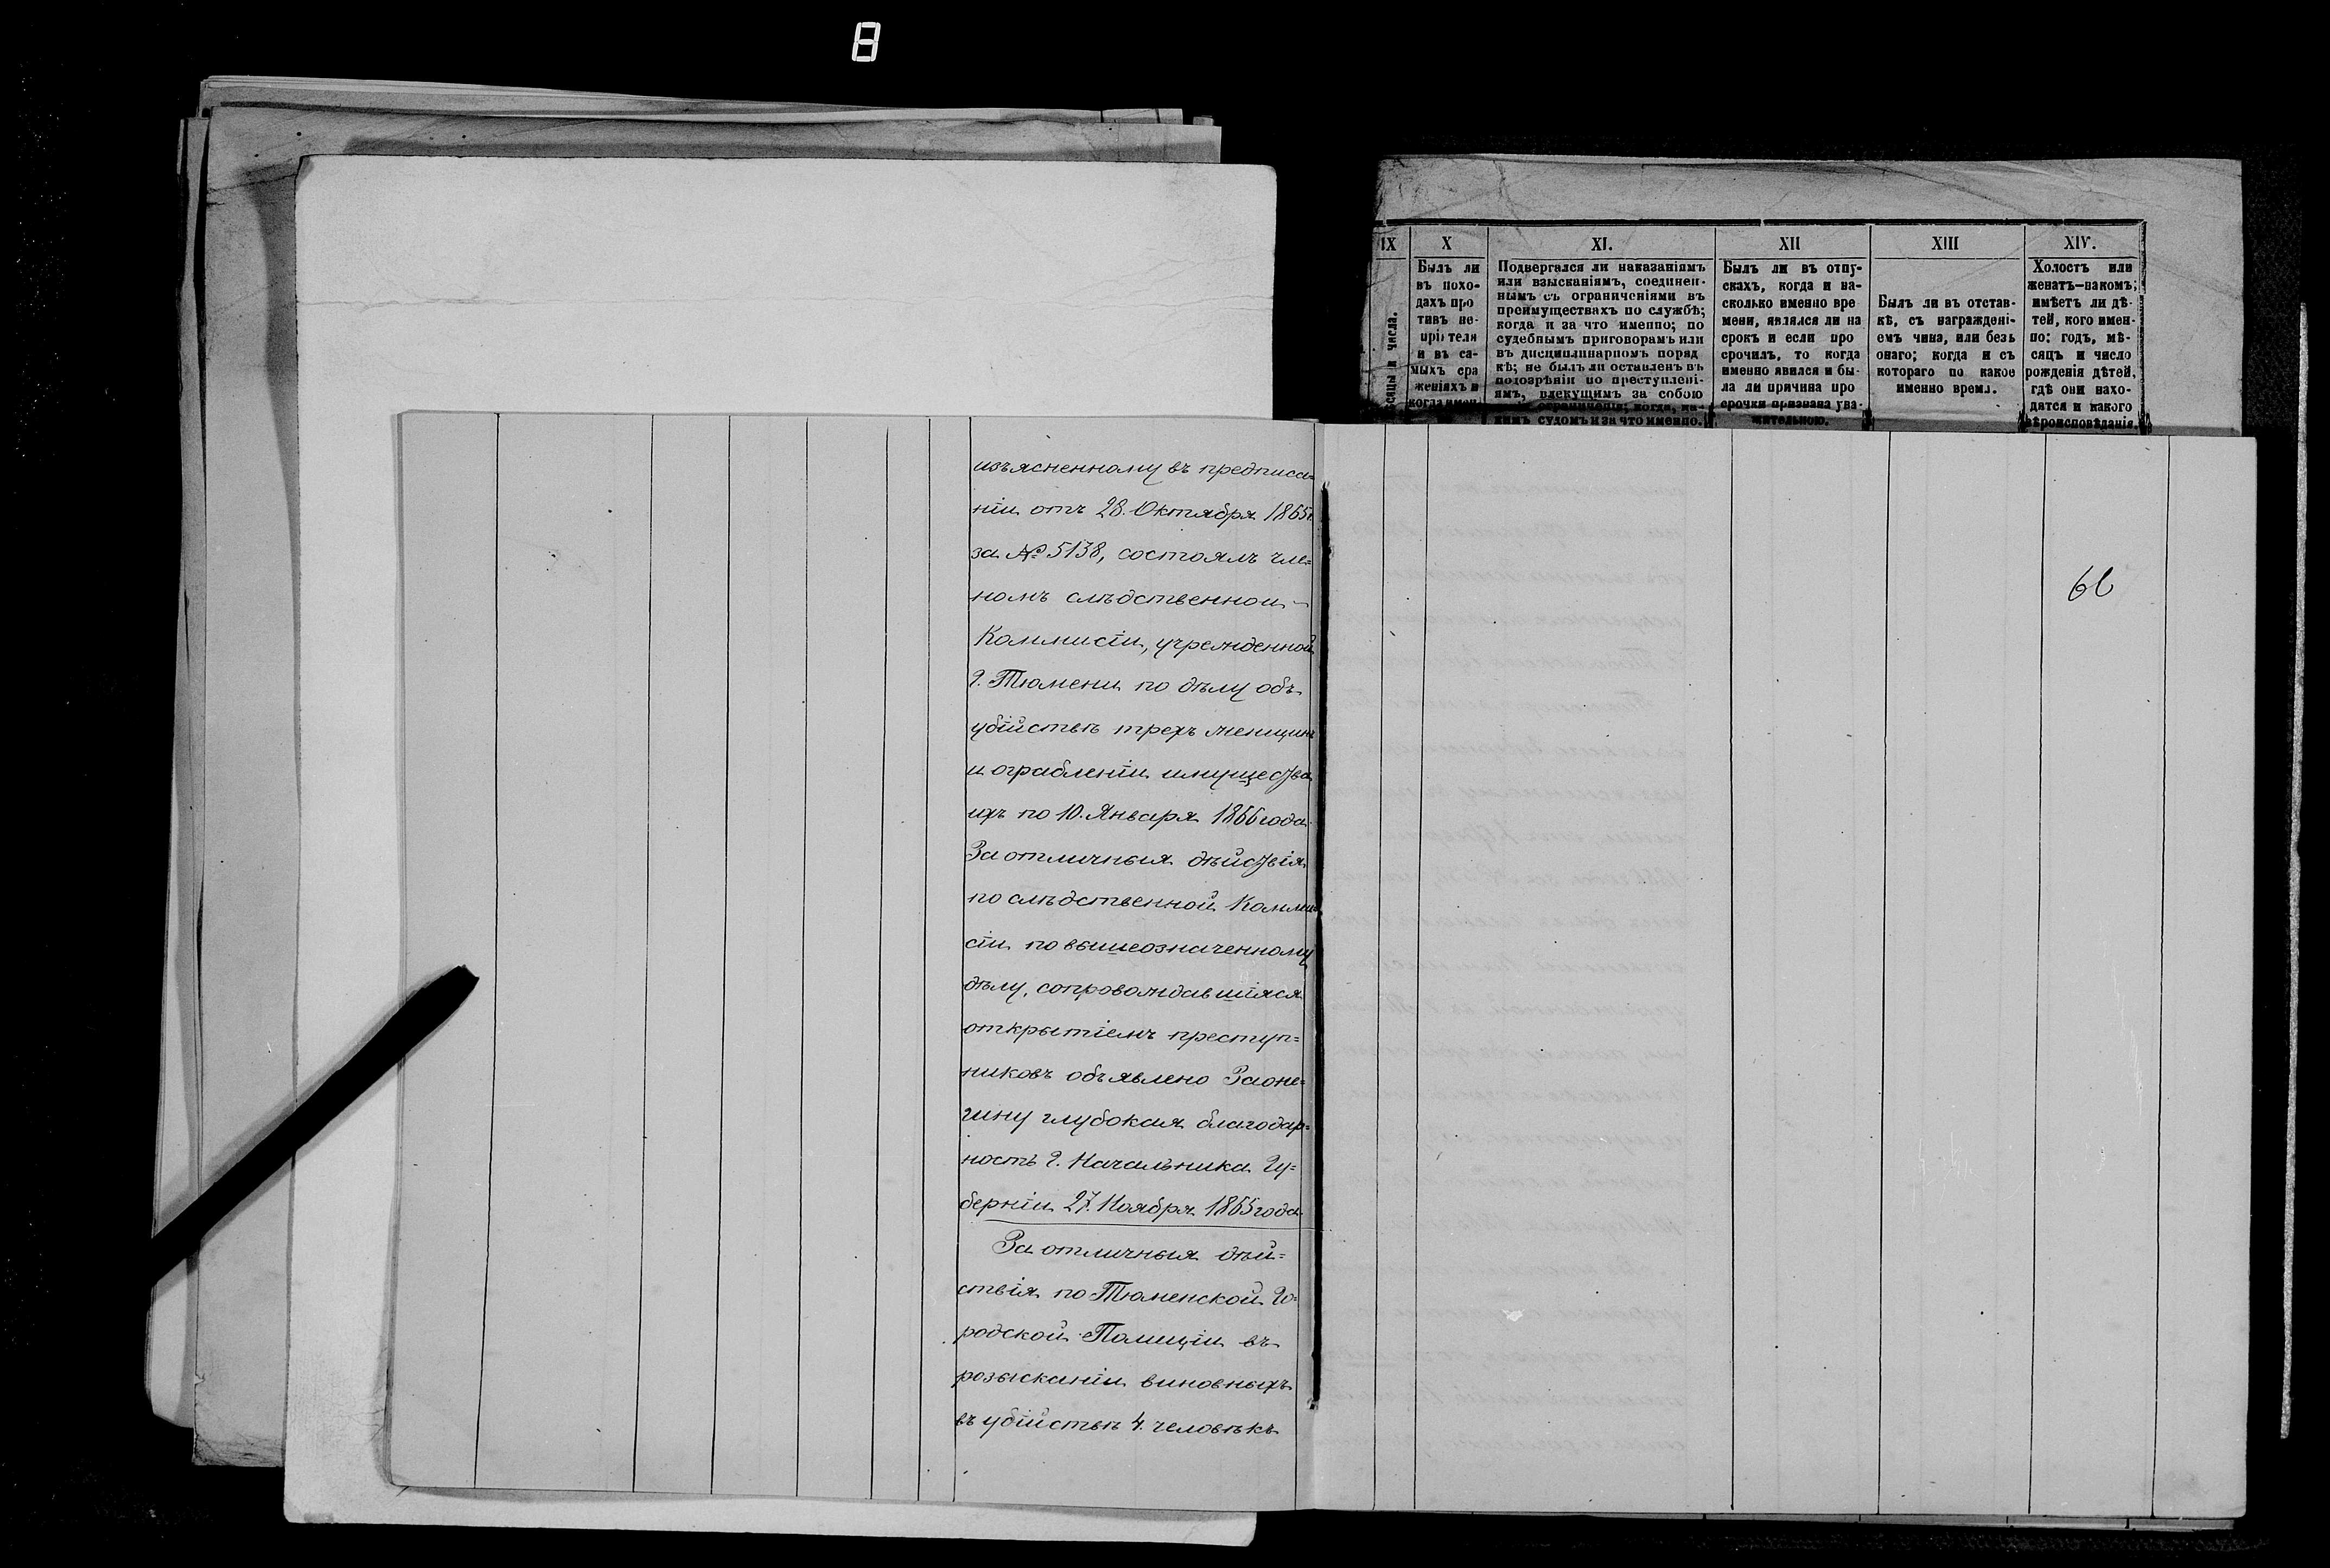 IX
X
XI.
XII
XIII
XIV.
Былъ ли
въ похо-
дахъ про
тивъ не-
прiятеля
и въ са-
мыхъ сра
женiяхъ и
когда имен-
Подвергался ли наказанiямъ
или взысканiямъ, соединен-
нымъ съ ограниченiями въ
преимуществахъ по службѣ;
когда и за что именно; по
судебнымъ приговорамъ или
въ дисциплинарномъ поряд
кѣ; не былъ ли оставленъ въ
подозрѣнiи по преступленi-
ямъ, влекущимъ за собою
ограниченiя; когда, ка-
кимъ судомъ и за что именно.
Былъ ли въ отпу-
скахъ, когда и на-
сколько именно вре
мени, являлся ли на
срокъ и если про
срочилъ, то когда
именно явился и бы-
ла ли причина про
срочки признана ува-
жительною.
Былъ ли въ отстав-
кѣ, съ награжденi-
емъ чина, или безъ
онаго; когда и съ
котораго по какое
именно время.
Холостъ или
женатъ—на комъ;
имѣетъ ли дѣ-
тей, кого имен-
но; годъ, мѣ-
сяцъ и число
рожденiя дѣтей,
гдѣ они нахо-
дятся и какого
вѣроисповѣданiя.
изъясненному въ предписа=
нiи отъ 28. Октября 1865г.
за № 5138, состоялъ чле=
номъ слѣдственной
Коммисiи, учрежденной
г. Тюмени по дѣлу объ
убiйствѣ трехъ женщинъ
и ограбленiи имущества
ихъ по 10. Января 1866 года.
За отличныя дѣйствiя
по слѣдственной Комми
сiи по вышеозначенному
дѣлу, сопровождавшiяся
открытiемъ преступ=
никовъ объявлено Заоне=
гину глубокая благодар=
ность г. Начальника Гу=
бернiи 27. Ноября 1865 года.
За отличныя дѣй=
ствiя по Тюменской Го=
родской Полицiи въ
розысканiи виновныхъ
въ убiйствѣ 4. человѣкъ